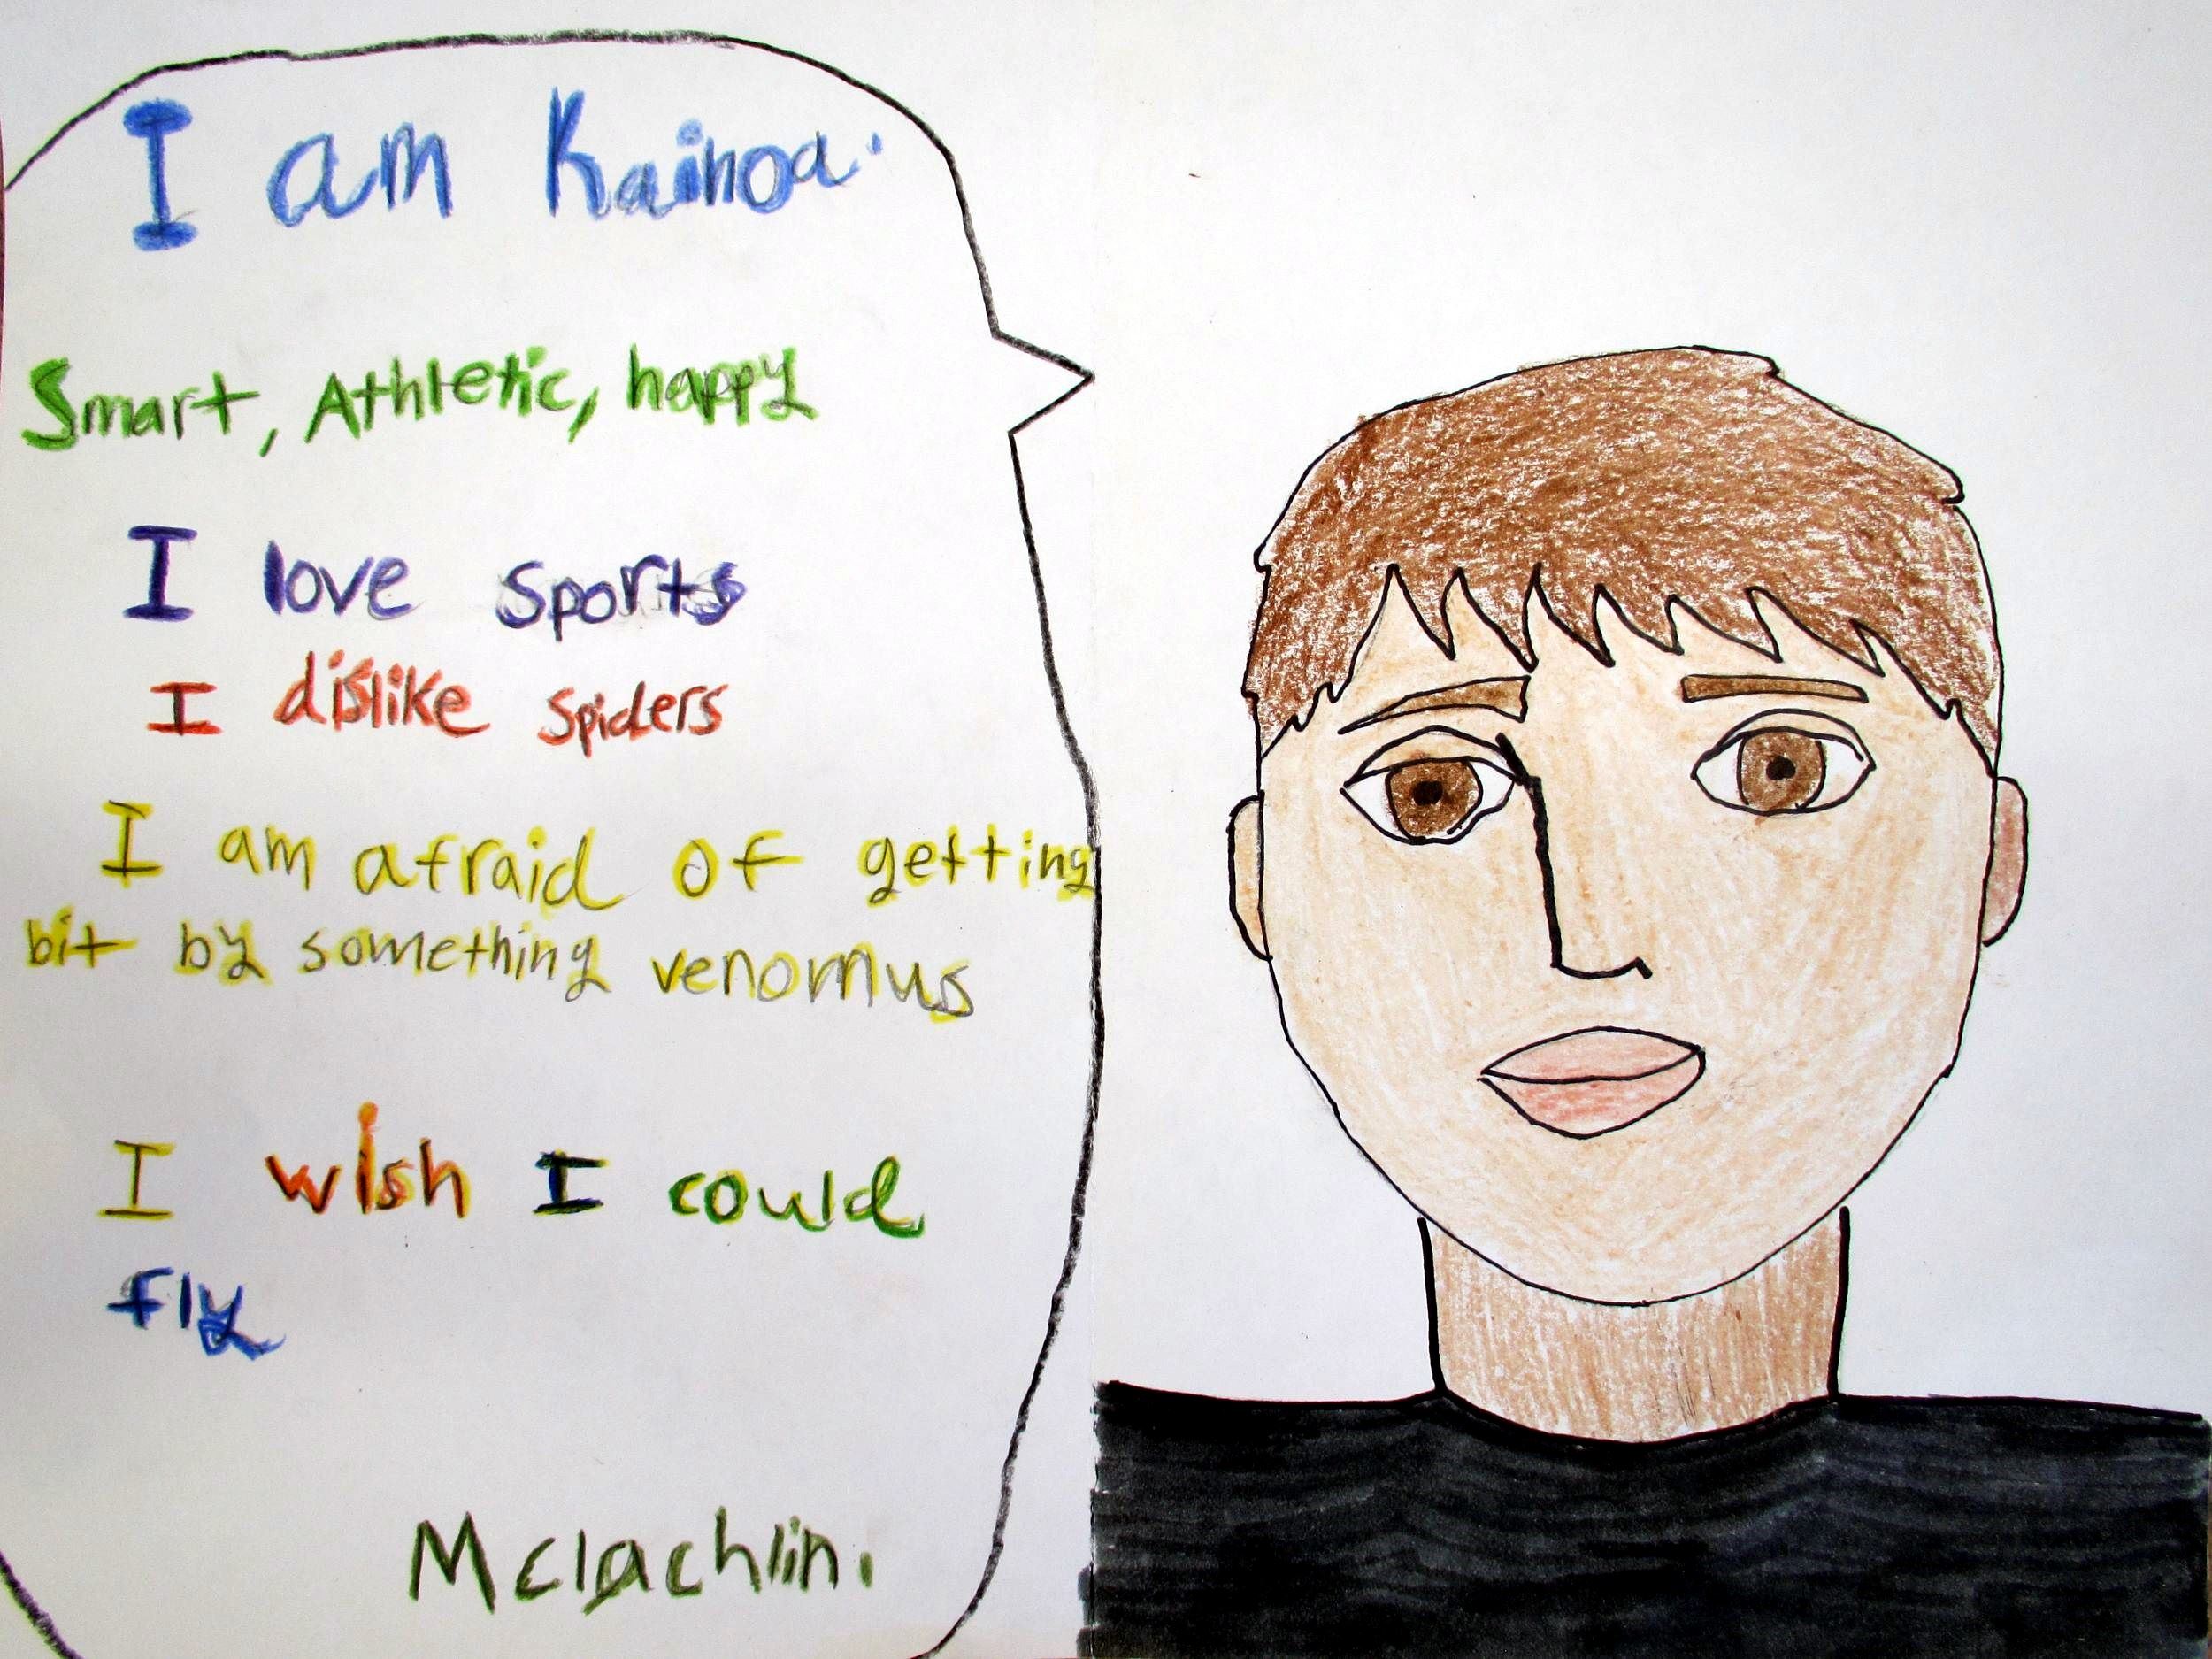 I am Kainoa.
Smart, Athletic, happy
I love sports
I dislike spiders
I am afraid of getting
bit by something venomus
I wish I could
fly
Mclachlin.